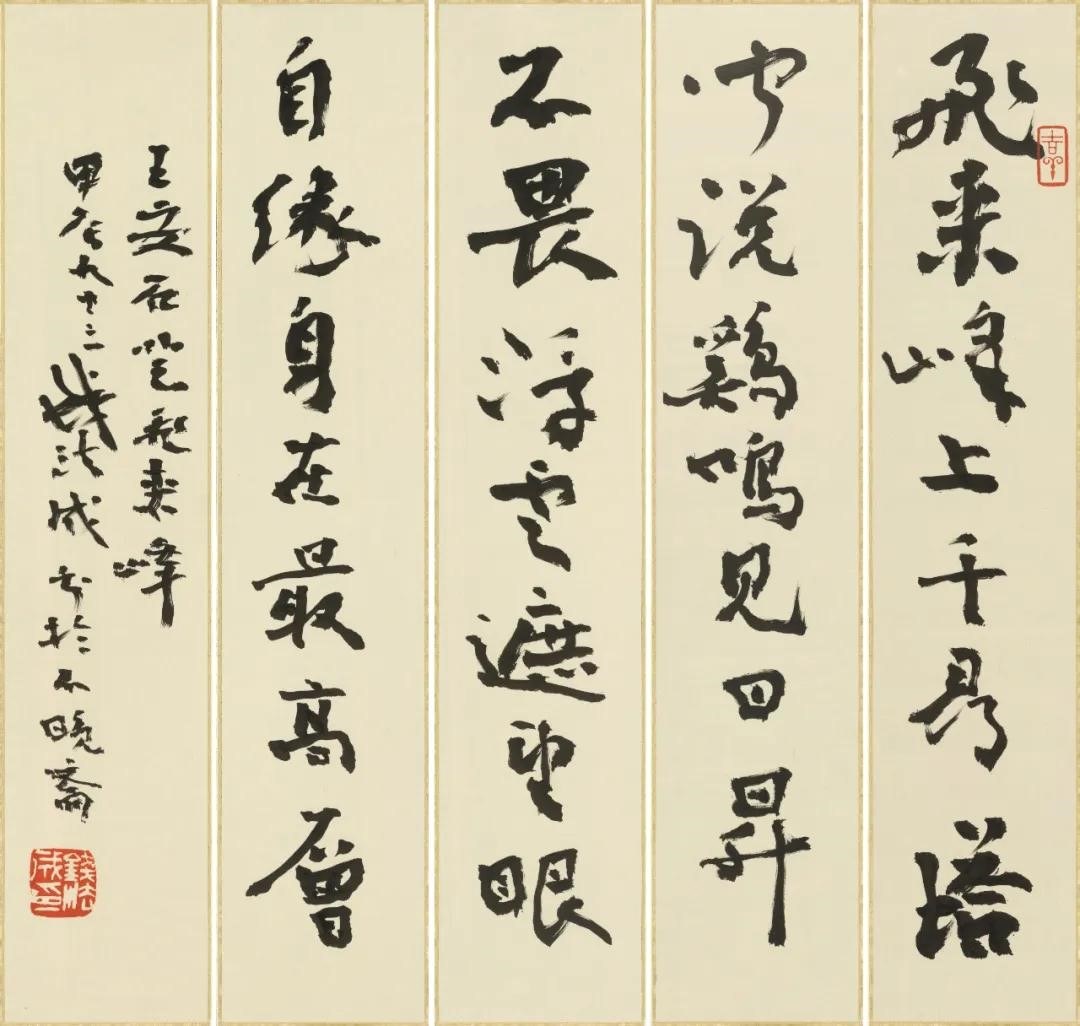 飛來峰上千尋塔
聞說鷄鳴見日昇
不畏浮雲遮望眼
自緣身在最高層
王安石登飛來峰
甲辰九十三錢法成书於不曉齋
錢法成印